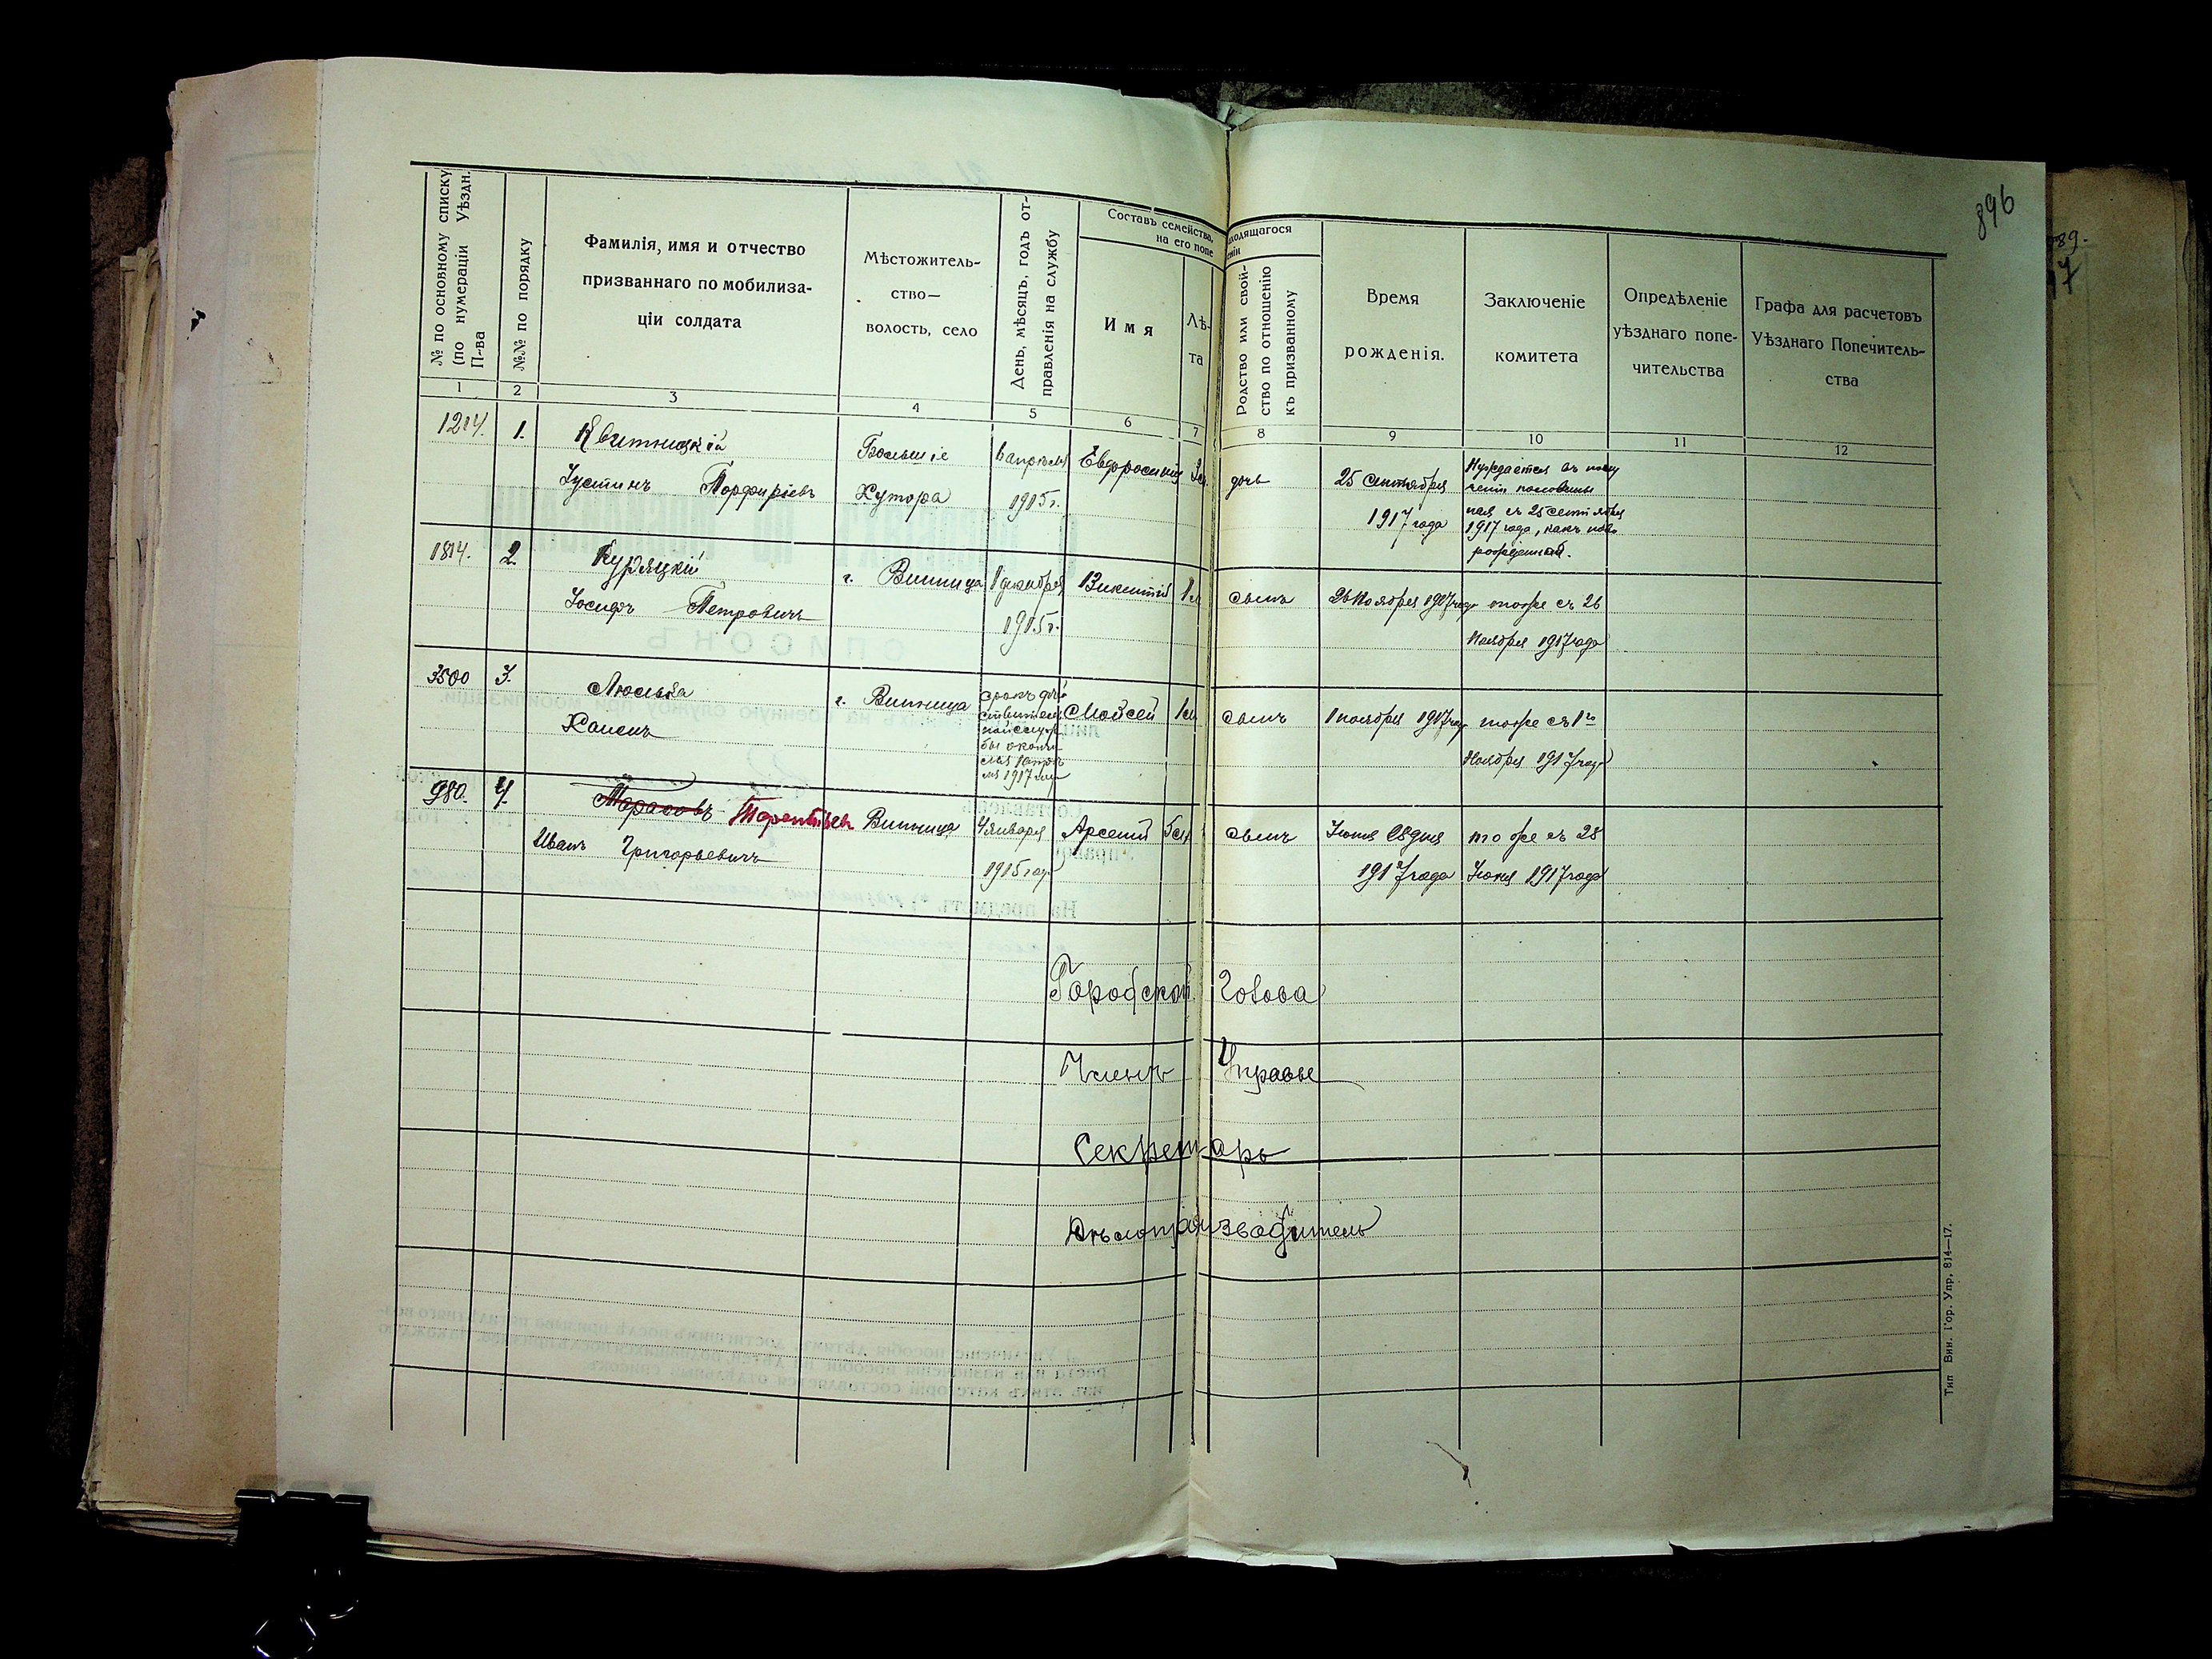 896
№ по основному списку (по нумераціи Уѣздн. П-ва
№№ по порядку
Фамилія, имя и отчество
призваннаго по мобилиза-
ціи солдата
Мѣстожитель-
ство—
волость, село
День, мѣсяцъ, годъ от-
правленія на службу
Составъ семейства, находящагося
на его попе
ніи
Имя
Лѣ-
та
Родство или свой-
ство по отношенію
къ призванному
Время
рожденія.
Заключеніе
комитета
Опредѣленіе
уѣзднаго попе-
чительства
Графа для расчетовъ
Уѣзднаго Попечитель-
ства
1 2 3 4 5 6 7 8 9 10 11 12
1214. 1. Квитницкій Большіе 6 апрѣля Евфросинія дочь 25 Сентября Нуждается въ
Іустинъ Порфиріевъ Хутора 1915 г. 1917 года половины
пая съ 25 сентября
1917 года, какъ ново
рожденный.
1814. 2. Куряцкій г. Винница 1 декабря Викентій 1 м сынъ 26 Ноября 1917 года тоже съ 26
Іосифъ Петровичъ 1915 г. Ноября 1917 года
3500 3. Люлька г. Винница срокъ дѣй Мойсей 1 м сынъ 1 ноября 1917 года тоже съ 1го
Хаимъ ствитель
ной служ
бы окон
1917 года
Ноября 1917 года
980. 4. Тарасовъ Терентьев Винница 4 января Арсеній 5 м сынъ Іюня 28 дня тоже съ 28
Иванъ Григорьевичъ 1915 год 1917 года Іюня 1917 года
Городской Голова
Членъ Управы
Секретарь
Дѣлопроизводитель
Тип Вин. Гор. Упр, 814—17.